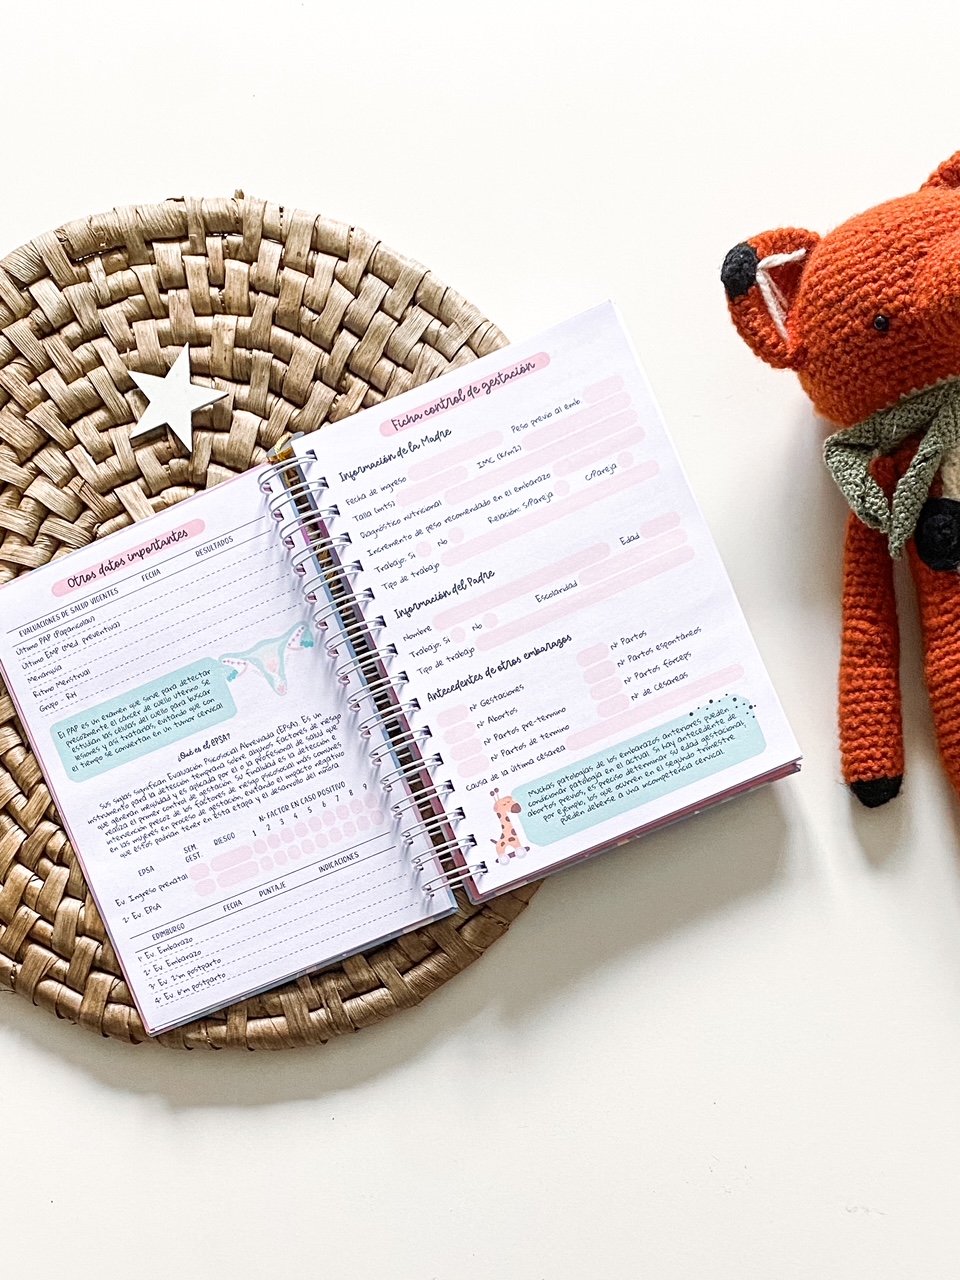 Otros datos importantes
EVALUACIONES DE SALUD VIGENTES FECHA RESULTADOS
Último PAP (Papanicolau)
Último EMP (Med. preventiva)
Menarquia
Ritmo Menstrual
Grupo - RH
El PAP es un examen que sirve para detectar
precozmente el cáncer de cuello uterino. Se
estudian las células del cuello para buscar
lesiones y así tratarlas, evitando que con
el tiempo se conviertan en un tumor cervical
¿Qué es el EPSA?
Sus siglas significan Evaluación Psicosocial Abreviada (EPsA). Es un
instrumento para la detección temprana sobre algunos factores de riesgo
que generan
realiza el primer control de gestación. Su finalidad es la detección e
intervención precoz de los factores de riesgo psicosocial más comunes
en las mujeres en proceso de gestación, evitando el impacto negativo
que estos podrían tener en esta etapa y el desarrollo del niño/a
EPSA SEM. GEST. RIESGO N° FACTOR EN CASO POSITIVO
1 2 3 4 5 6 7 8 9
Ev. Ingreso prenatal
2ª Ev. EPsA
EDIMBURGO FECHA PUNTAJE INDICACIONES
1ª Ev. Embarazo
2ª Ev. Embarazo
3ª Ev. 2ºm postparto
4ª Ev. 6ºm postparto
Ficha control de gestación
Información de la Madre
Fecha de ingreso Peso previo al emb.
Talla (mts) IMC (k/m2)
Diagnóstico nutricional
Incremento de peso recomendado en el embarazo
Trabajo: Si No Relación: S/Pareja C/Pareja
Tipo de trabajo
Información del Padre
Nombre Edad
Trabajo: Si No Escolaridad
Tipo de trabajo
Antecedentes de otros embarazos
Nº Gestaciones Nº Partos
Nº Abortos Nº Partos espontáneos
Nº Partos pre-término Nº Partos fórceps
Nº Partos de término Nº de Cesáreas
Causa de la última cesárea
Muchas patologías de los embarazos anteriores pueden
condicionar patología en el actual. Si hay antecedente de
abortos previos, es preciso determinar su edad gestacional,
por ejemplo, los que ocurren en el segundo trimestre
pueden deberse a una incompetencia cervical